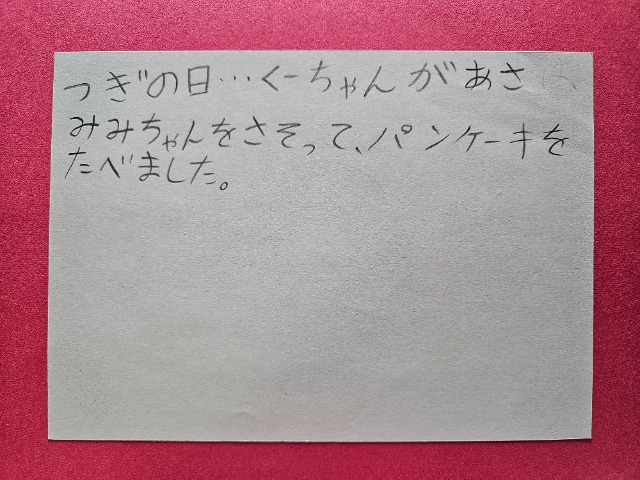 つぎの日…くーちゃんがあさ
みみちゃんをさそって、パンケーキを
たべました。